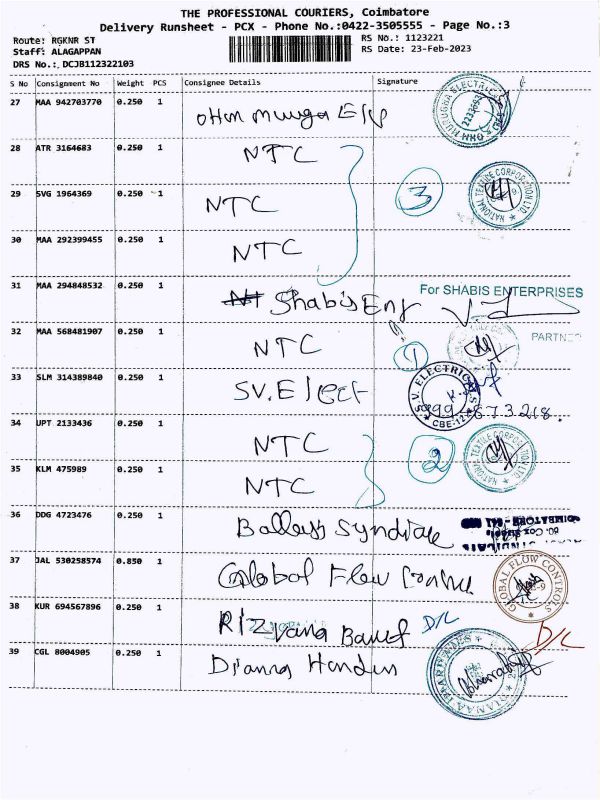 THE PROFESSIONAL COURIERS, Coimbatore
Delivery Runsheet - PCX - Phone No.:0422-3505555 - Page No.:3
Route: RGKNR ST
RS No.: 1123221
Staff: ALAGAPPAN
RS Date: 23-Feb-2023
DRS No.: DCJB112322103
S No Consignment No Weight PCS Consignee Details Signature
27 MAA 942703770 0.250 1
28 ATR 3164683 0.250 1 NTC
3
29 SVG 1964369 0.250 1 NTC
NATIONAL TEXTILE CORPORATION LTD
30 MAA 292399455 0.250 1 NTC
31 MAA 294848532 0.250 1 Shabis Ent
For SHABIS ENTERPRISES
32 MAA 568481907 0.250 1 NTC
1
33 SLM 314389840 0.250 1 SV. Elect
S.V. ELECTRICALS
CBE-12
34 UPT 2133436 0.250 1 NTC
2
NATIONAL TEXTILE CORPORATION LTD
35 KLM 475989 0.250 1 NTC
36 DDG 4723476 0.250 1
37 JAL 530258574 0.850 1 Global Flow
GLOBAL FLOW CONTROLS
38 KUR 694567896 0.250 1 D/L
D/L
39 CGL 8004905 0.250 1